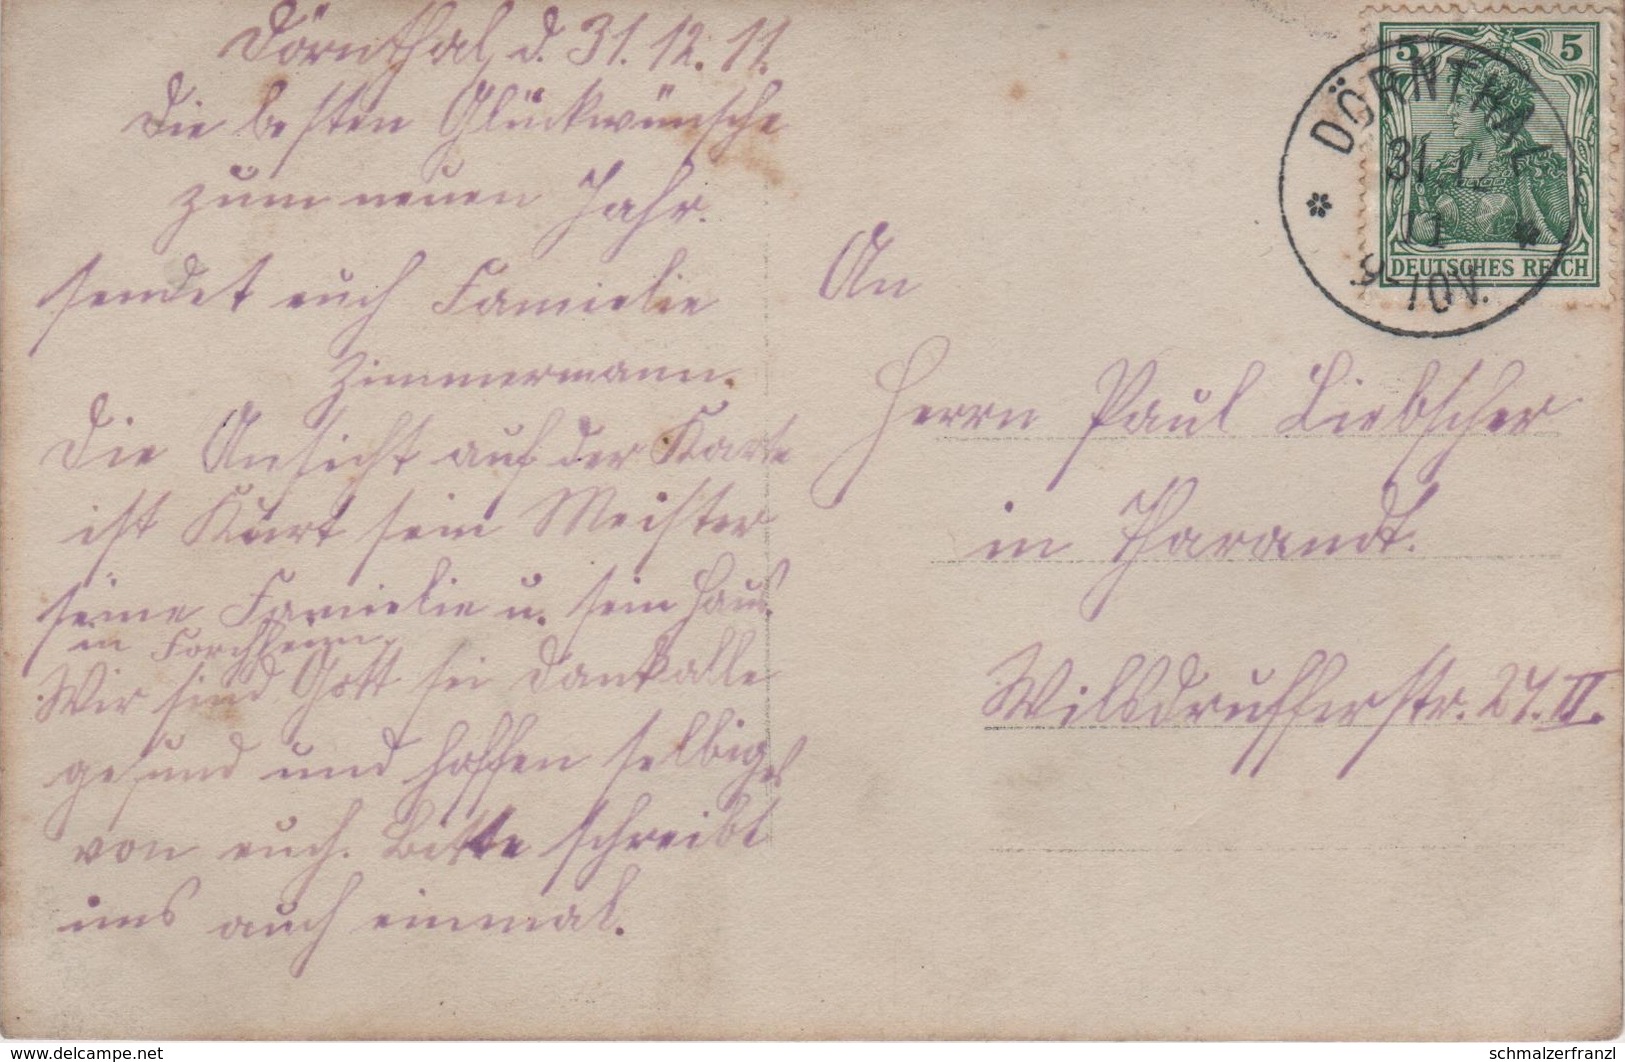 Dörnthal, d. 31. 12. 11.
Die besten Glückwünsche
zum neuen Jahr.
sendet euch Famielie
Zimmermann.
Die Ansicht auf der Karte
ist Kurt sein Meister
seine Famielie u. sein Haus
in Forchheim
Wir sind Gott sei Dank alle
gesund und hoffen selbiges
von euch. Bitte schreibt
uns auch einmal.
5 5
DEUTSCHES REICH
DÖRNTHAL
31.12
11
9-10V.
An
Herrn Paul Liebscher
in Tharandt.
Wilsdrufferstr. 27. II.
www.delcampe.net
schmalzerfranzl